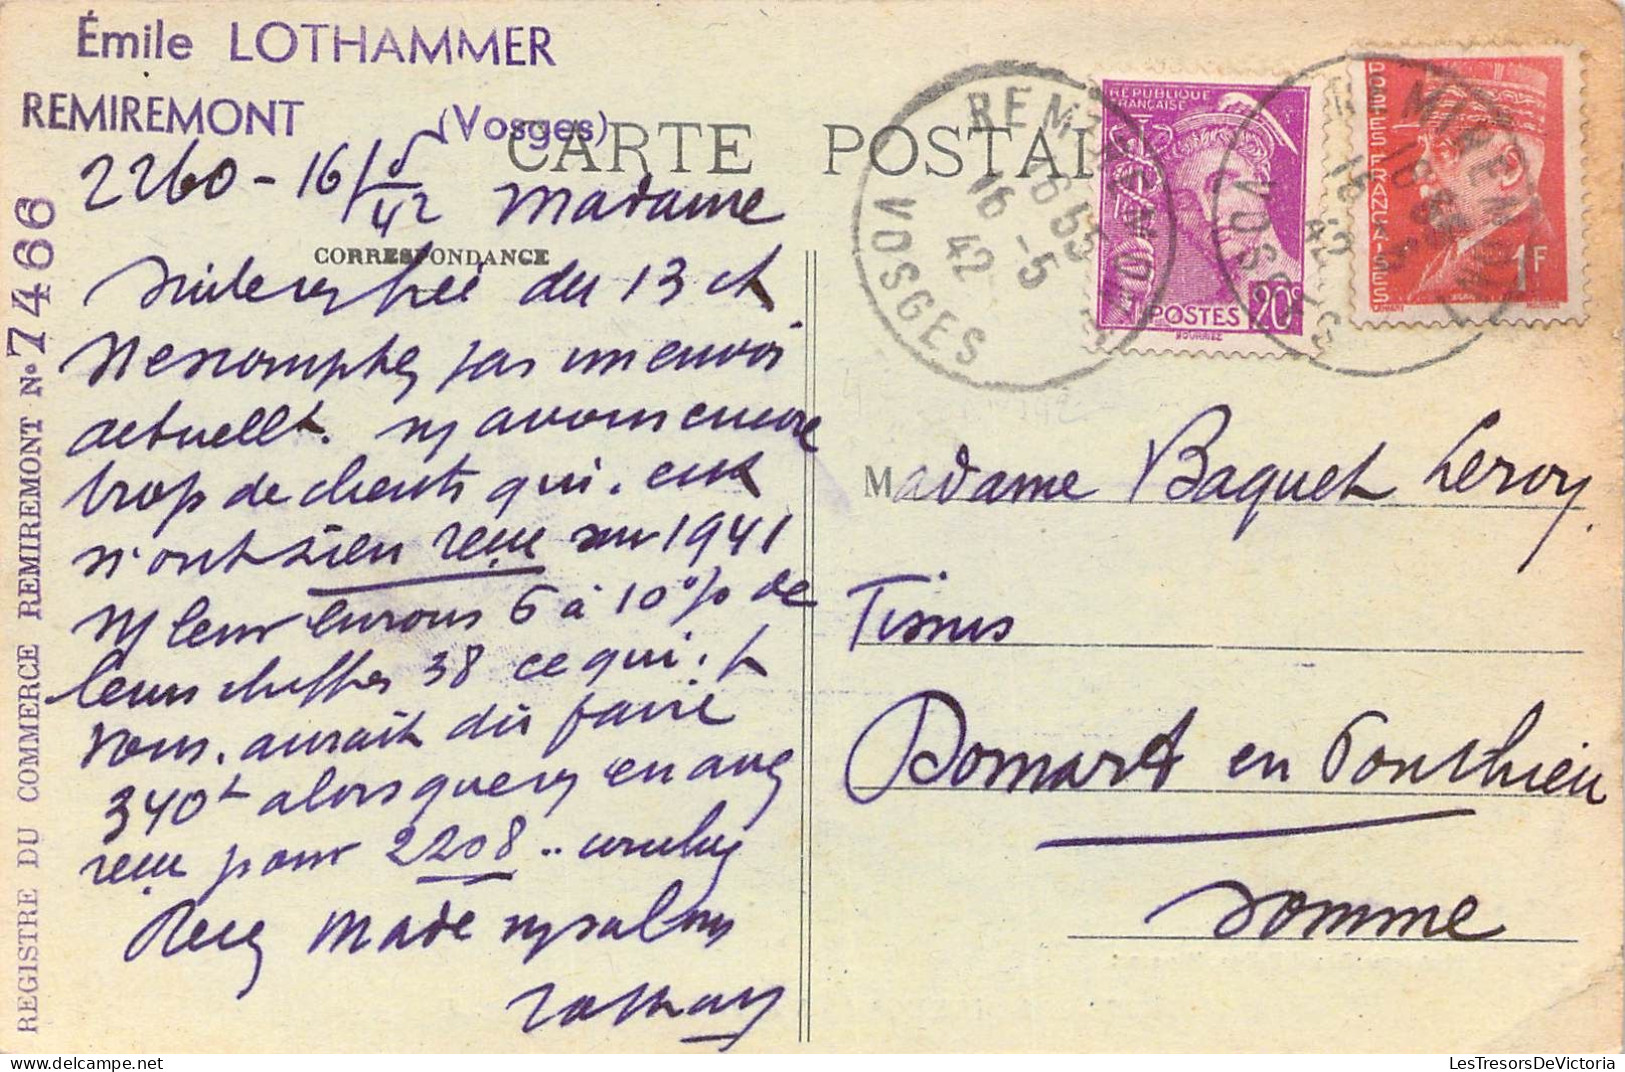 Émile LOTHAMMER
REMIREMONT (Vosges)
CARTE POSTALE
2260 - 16/5/42 Madame
CORRESPONDANCE
du 13 ct
Ne comptez pas un envoi
actuellt. ns avons encore
trop de clients qui. ces
n'ont rien reçu sur 1941
ns leur livrons 6 à 10% de
leurs chiffres 38 ce qui. 
vous. aurait dû faire
340 alors que vs en avez
reçu pour 2208..
Recz Made ns salons
REGISTRE DU COMMERCE REMIREMONT N° 7466
REMIREMONT
16 - 5
42
VOSGES
RÉPUBLIQUE FRANÇAISE
POSTES 20c
REMIREMONT
16 - 5
42
VOSGES
POSTES FRANÇAISES
1F
Madame Baquet Leroy
Tissus
Domart en Ponthieu
Somme
LesTresorsDeVictoria